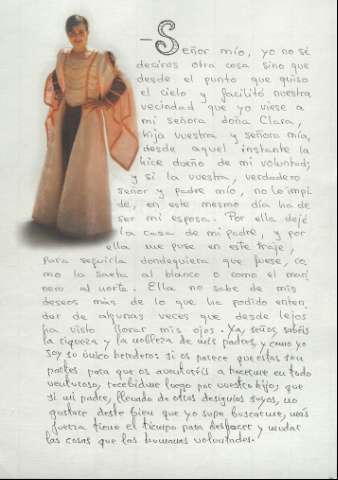 —Señor mío, yo no sé
deciros otra cosa sino que
desde el punto que quiso
el cielo y facilitó nuestra
vecindad que yo viese a
mi señora doña Clara,
hija vuestra y señora mía,
desde aquel instante la
hice dueño de mi voluntad;
y si la vuestra, verdadero
señor y padre mío, no lo impi-
de, en este mismo día ha de
ser mi esposa. Por ella dejé
la casa de mi padre, y por
ella me puse en este traje,
para seguirla dondequiera que fuese, co-
mo la saeta al blanco o como el mari-
nero al norte. Ella no sabe de mis
deseos más de lo que ha podido enten-
der de algunas veces que desde lejos
ha visto llorar mis ojos. Ya, señor, sabéis
la riqueza y la nobleza de mis padres, y como yo
soy su único heredero: si os parece que estas son
partes para que os aventuréis a hacerme en todo
venturoso, recebidme luego por vuestro hijo; que
si mi padre, llevado de otros designios suyos, no
gustare deste bien que yo supe buscarme, más
fuerza tiene el tiempo para deshacer y mudar
las cosas que las humanas voluntades.